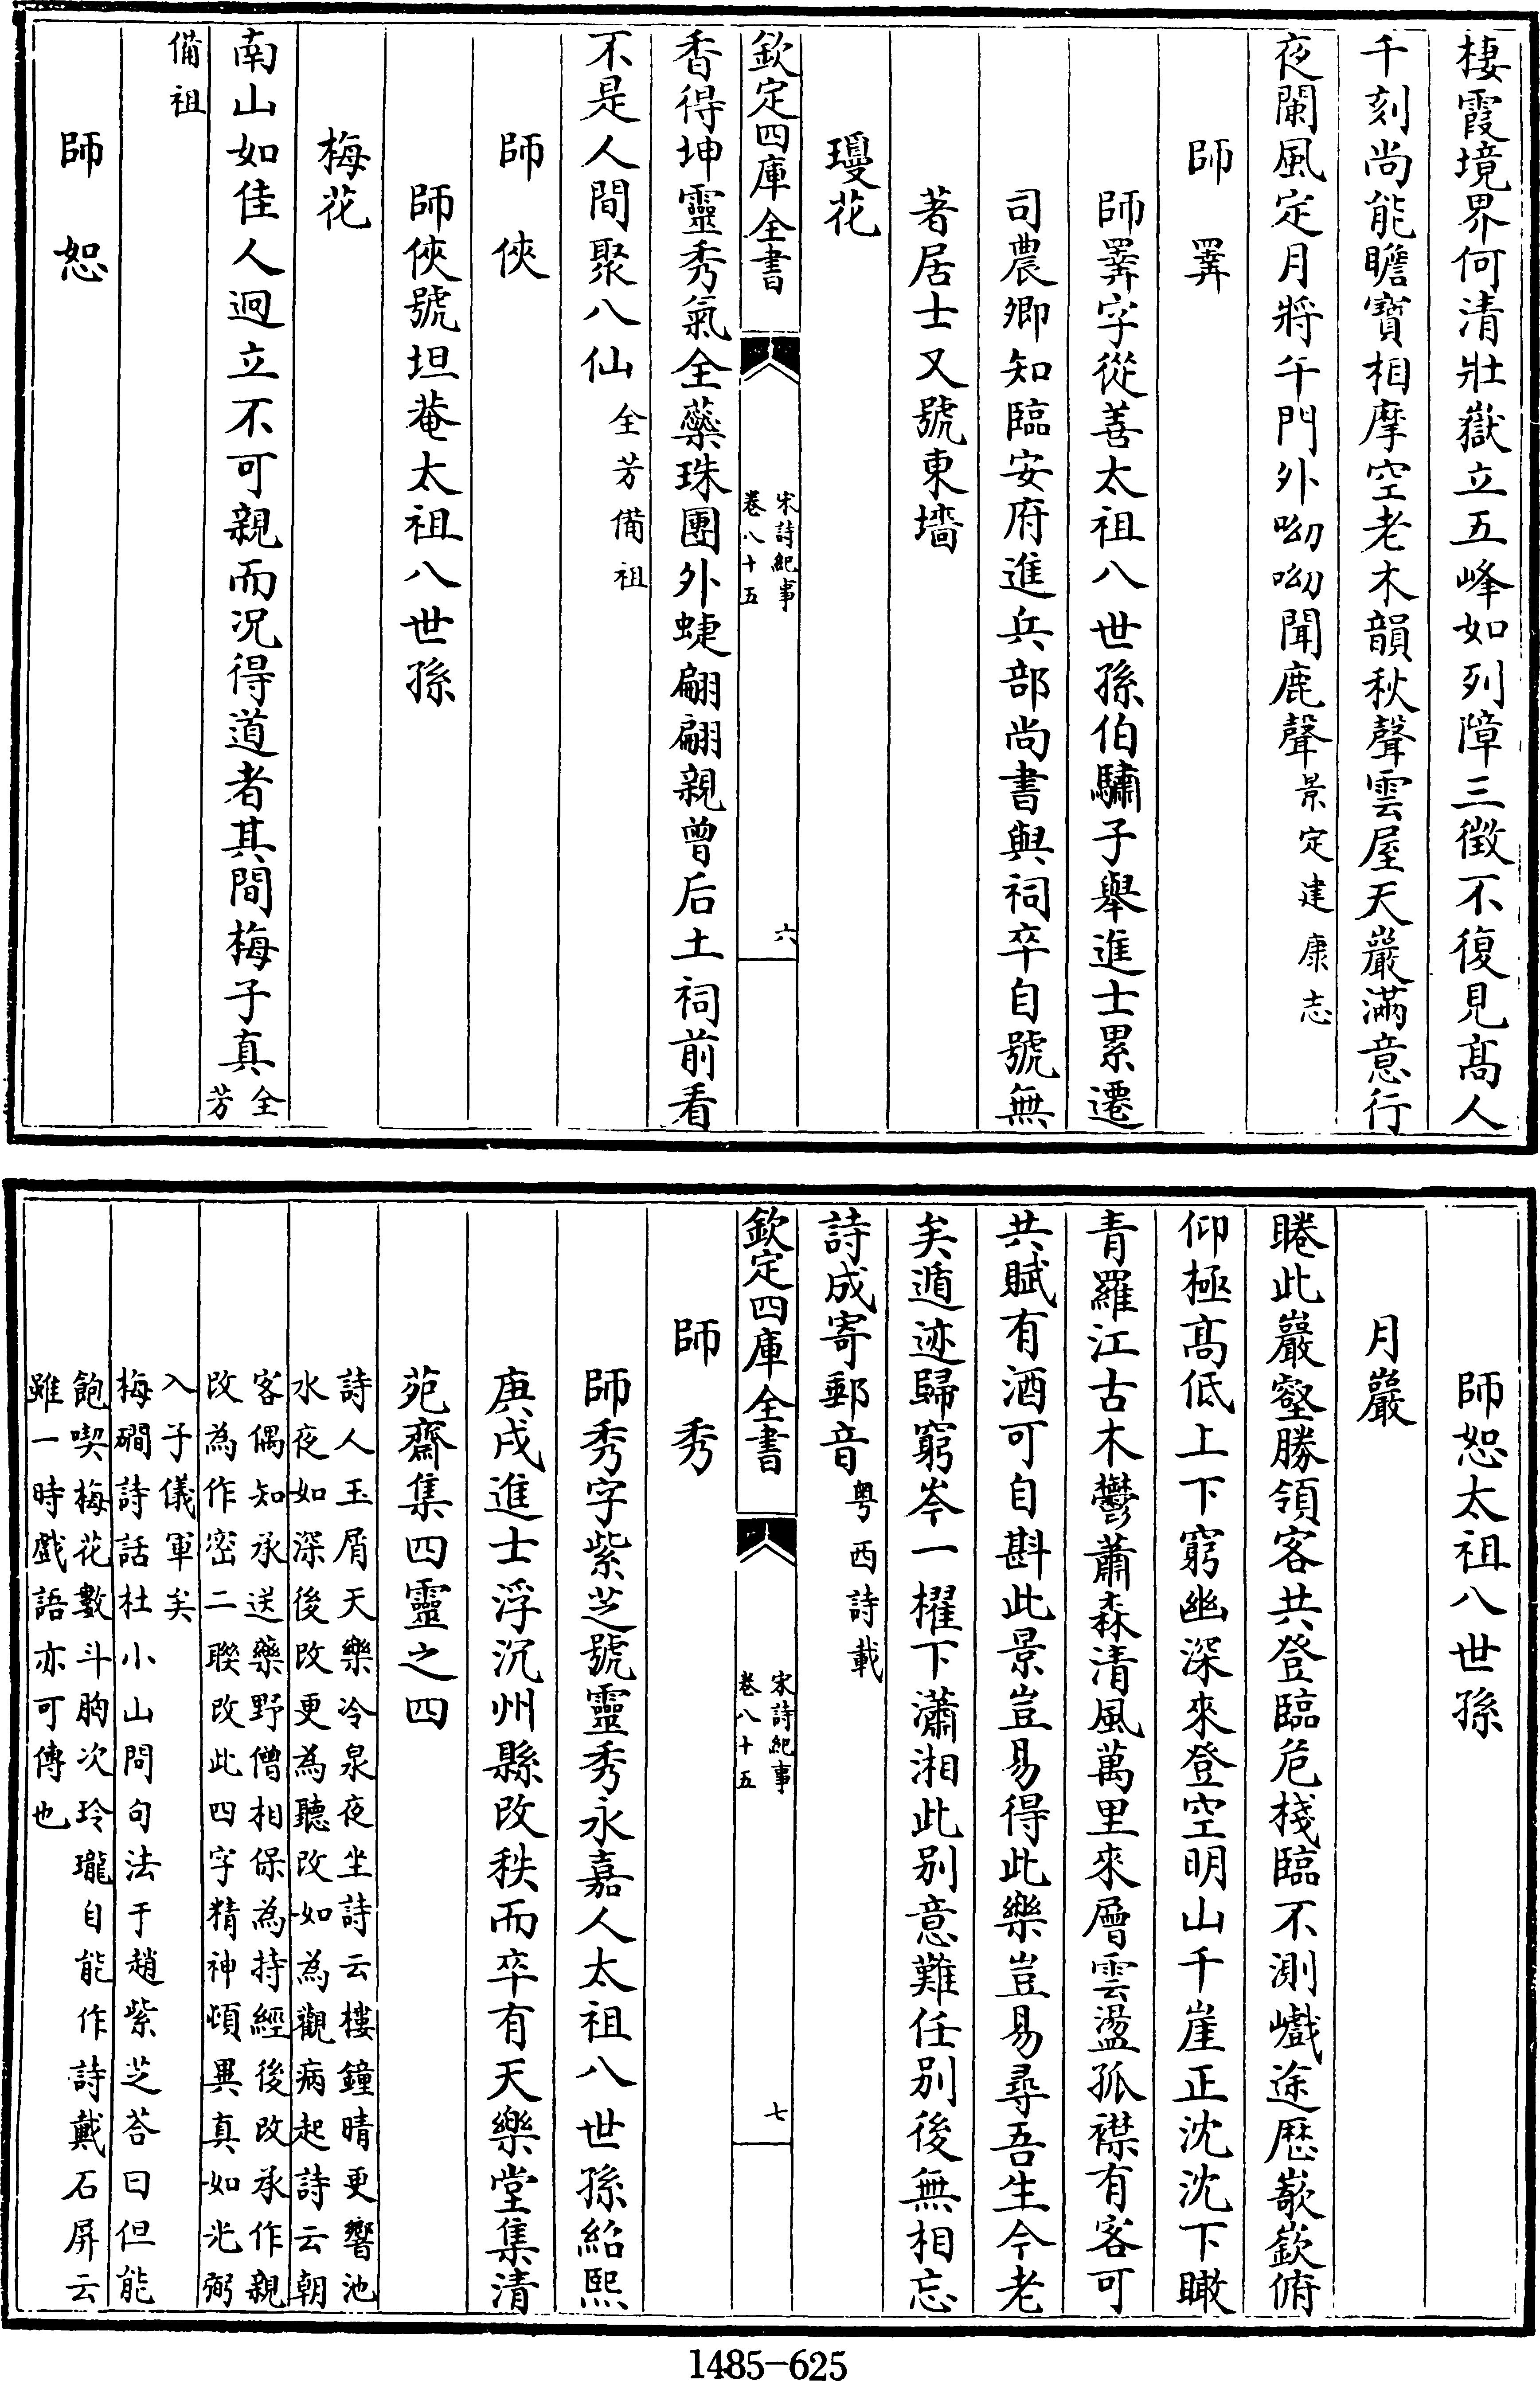 棲霞境界何清壯嶽立五峰如列障三徵不復見髙人
千刻尚能瞻寳相摩空老木韻秋聲雲屋天巖滿意行
夜闌風定月將午門外呦呦聞鹿聲景定建康志
師𢍰
師𢍰字從善太祖八世孫伯驌子舉進士累遷
司農卿知臨安府進兵部尚書與祠卒自號無
著居士又號東墻
瓊花
欽定四庫全書
宋詩紀事
卷八十五
六
香得坤靈秀氣全蘂珠團外蜨翩翩親曽后土祠前看
不是人間聚八仙全芳備祖
師俠
師俠號坦菴太祖八世孫
梅花
南山如佳人迥立不可親而况得道者其間梅子真全芳
備祖
師恕
師恕太祖八世孫
月巖
睠此巖壑勝領客共登臨危棧臨不測巇途歴嶔嶔俯
仰極髙低上下窮幽深來登空明山千崖正沈沈下瞰
青羅江古木鬱蕭森清風萬里來層雲盪孤襟有客可
共賦有酒可自斟此景豈易得此樂豈易尋吾生今老
矣遁迹歸窮岑一櫂下瀟湘此别意難任别後無相忘
詩成寄郵音粵西詩載
欽定四庫全書
宋詩紀事
卷八十五
七
師秀
師秀字紫芝號靈秀永嘉人太祖八世孫紹熙
庚戌進士浮沉州縣改秩而卒有天樂堂集清
苑齋集四靈之四
詩人玉屑天樂冷泉夜坐詩云樓鐘晴更響池
水夜如深後改更為聽改如為觀病起詩云朝
客偶知承送藥野僧相保為持經後改承作親
改為作密二聨改此四字精神頓異真如光弼
入子儀軍矣
梅磵詩話杜小山問句法于趙紫芝荅曰但能
飽喫梅花數斗胸次玲瓏自能作詩戴石屏云
雖一時戲語亦可傳也
1485-625